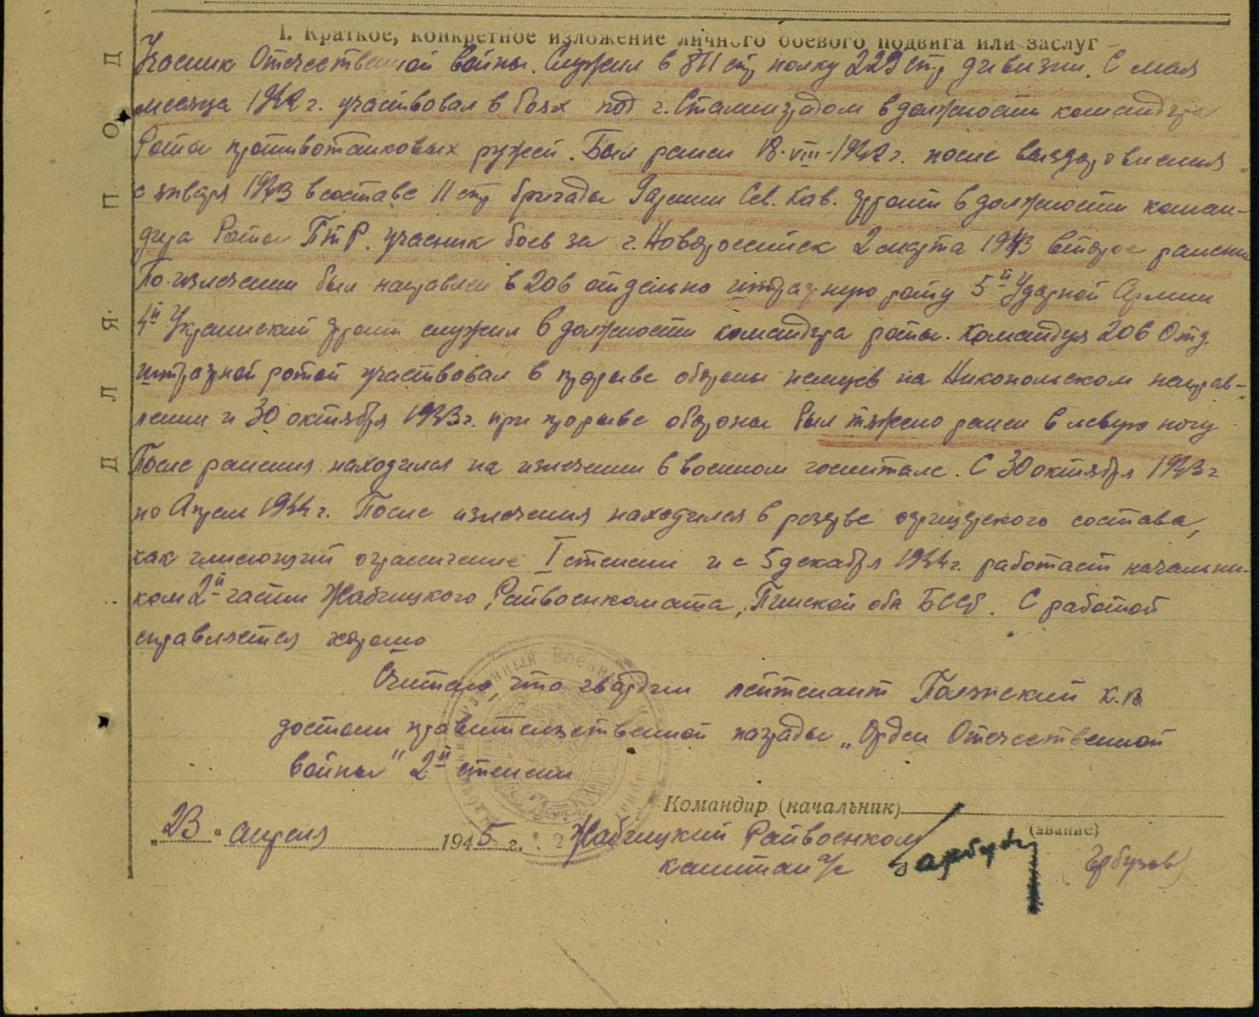 I. Краткое, конкретное изложение личного боевого подвига или заслуг
Учасник Отечественной войны. Служил в 811 стр полку 229 стр дивизии. С мая
месяца 1942 г. участвовал в боях под г. Сталинградом в должности командира
Роты противотанковых ружей. Был ранен 18-VIII-1942 г. после выздоровления
с января 1943 в составе 11 стр бригады Сев. Кав. фронт в должности коман-
дира Роты ПТР. учасник боев за г. Новороссийск 2 марта 1943 второе ранение
По излечении был направлен в 206 отдельно штрафную роту 5й Ударной Армии
4й Украинский фронт служил в должности командира роты. Командуя 206 Отд.
штрафной ротой участвовал в прорыве обороны немцев на Никопольском направ-
лении и 30 октября 1943 г. при прорыве обороны был тяжело ранен в левую ногу
После ранения находился на излечении в военном госпитале. С 30 октября 1943 г
по Апрель 1944 г. После излечения находился в резерве офицерского состава,
как имеющий ограничение I степени и с 5 декабря 1944 г. работает начальни-
ком 2й части Жабчицкого Райвоенкомата, Пинской обл БССР. С работой
справляется хорошо
Считаю, что гвардии лейтенант К.В
достоин правительственной награды „Орден Отечественной
войны" 2й степени
Командир (начальник)
(звание)
„23" апреля 1945 г. Жабчицкий Райвоенком
капитан а/с
ДЛЯ ПОД